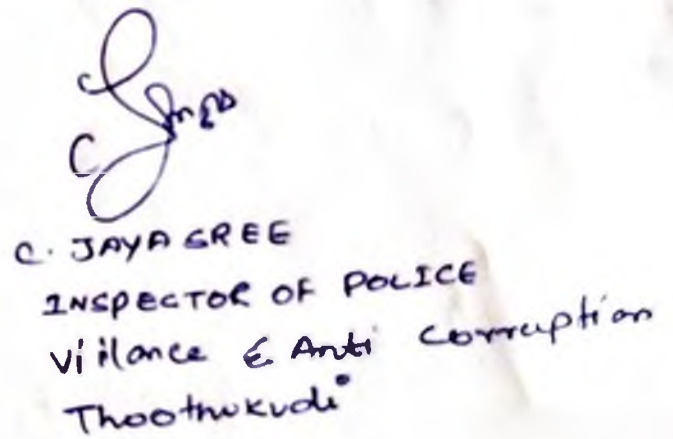 C. JAYASREE
INSPECTOR OF POLICE
Viilance & Anti Corruption
Thoothukudi